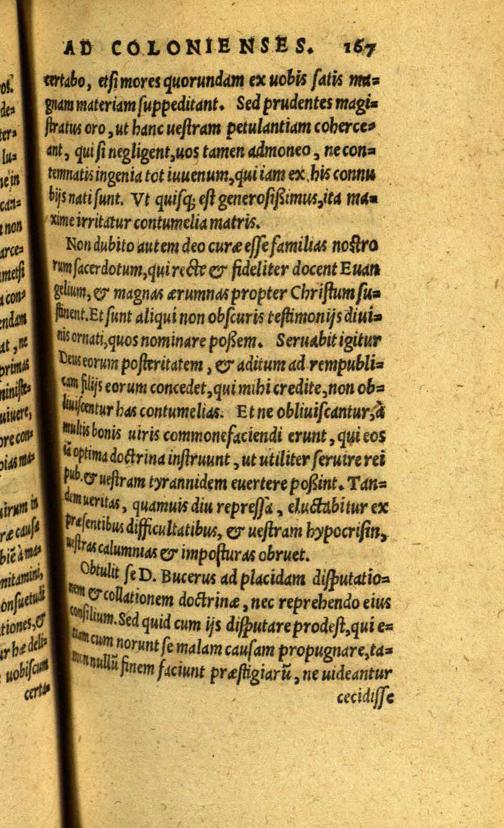 AD COLONIENSES. 167
os.
certabo, etsi mores quorundam ex uobis satis ma=
gnam materiam suppeditant. Sed prudentes magi=
stratus oro, ut hanc uestram petulantiam coherce=
ant, qui si negligent, uos tamen admoneo, ne con=
temnatis ingenia tot iuuenum, qui iam ex his connu
bijs nati sunt. Vt quisq; est generosißimus, ita ma=
xime irritatur contumelia matris.
Non dubito autem deo curæ esse familias nostro
rum sacerdotum, qui recte & fideliter docent Euan
gelium, & magnas ærumnas propter Christum su=
stinent. Et sunt aliqui non obscuris testimonijs diui=
nis ornati, quos nominare poßem. Seruabit igitur
Deus eorum posteritatem, & aditum ad rempubli=
cam filijs eorum concedet, qui mihi credite, non ob=
liuiscentur has contumelias. Et ne obliuiscantur, à
multis bonis uiris commonefaciendi erunt, qui eos
optima doctrina instruunt, ut utiliter seruire rei
pub. & uestram tyrannidem euertere poßint. Tan=
dem ueritas, quamuis diu repressa, eluctabitur ex
præsentibus difficultatibus, & uestram hypocrisin,
uestras calumnias & imposturas obruet.
Obtulit se D. Bucerus ad placidam disputatio=
nem & collationem doctrinæ, nec reprehendo eius
consilium. Sed quid cum ijs disputare prodest, qui e=
tiam cum norunt se malam causam propugnare, ta=
men nullũ finem faciunt præstigiarũ, ne uideantur
cecidisse